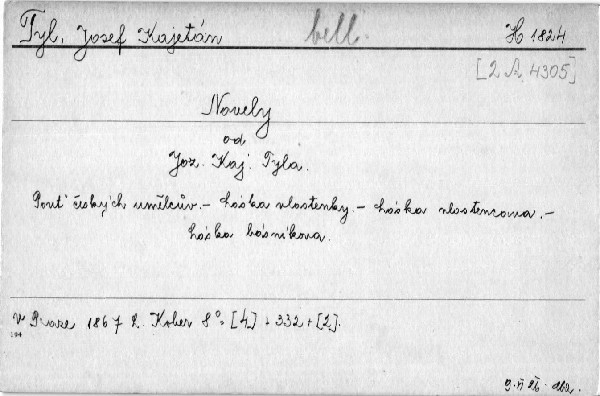 Tyl, Josef Kajetán bell. H 1824
[2 A 4305]
Novely
od
Joz. Kaj. Tyla.
Pouť českých umělcův. – Láska vlastenky. – Láska vlastencova. –
Láska básníkova.
v Praze 1867 I. Kober 8° [4] + 332 + [2].
194